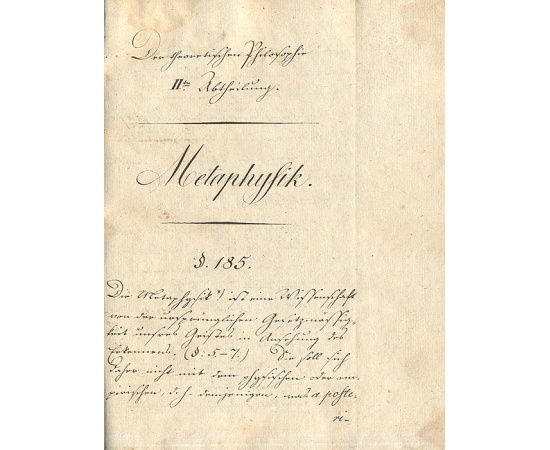 Der theoretischen Philosophie
IIte Abtheilung.
Metaphysik.
§. 185.
Die Metaphysik*) ist eine Wissenschaft
von der ursprünglichen Gesetzmässig-
keit unsres Geistes in Ansehung des
Erkennens. (§. 5-7.) Sie soll sich
daher nicht mit dem physischen oder em-
pirischen, d. h. demjenigen, was a poste-
ri-